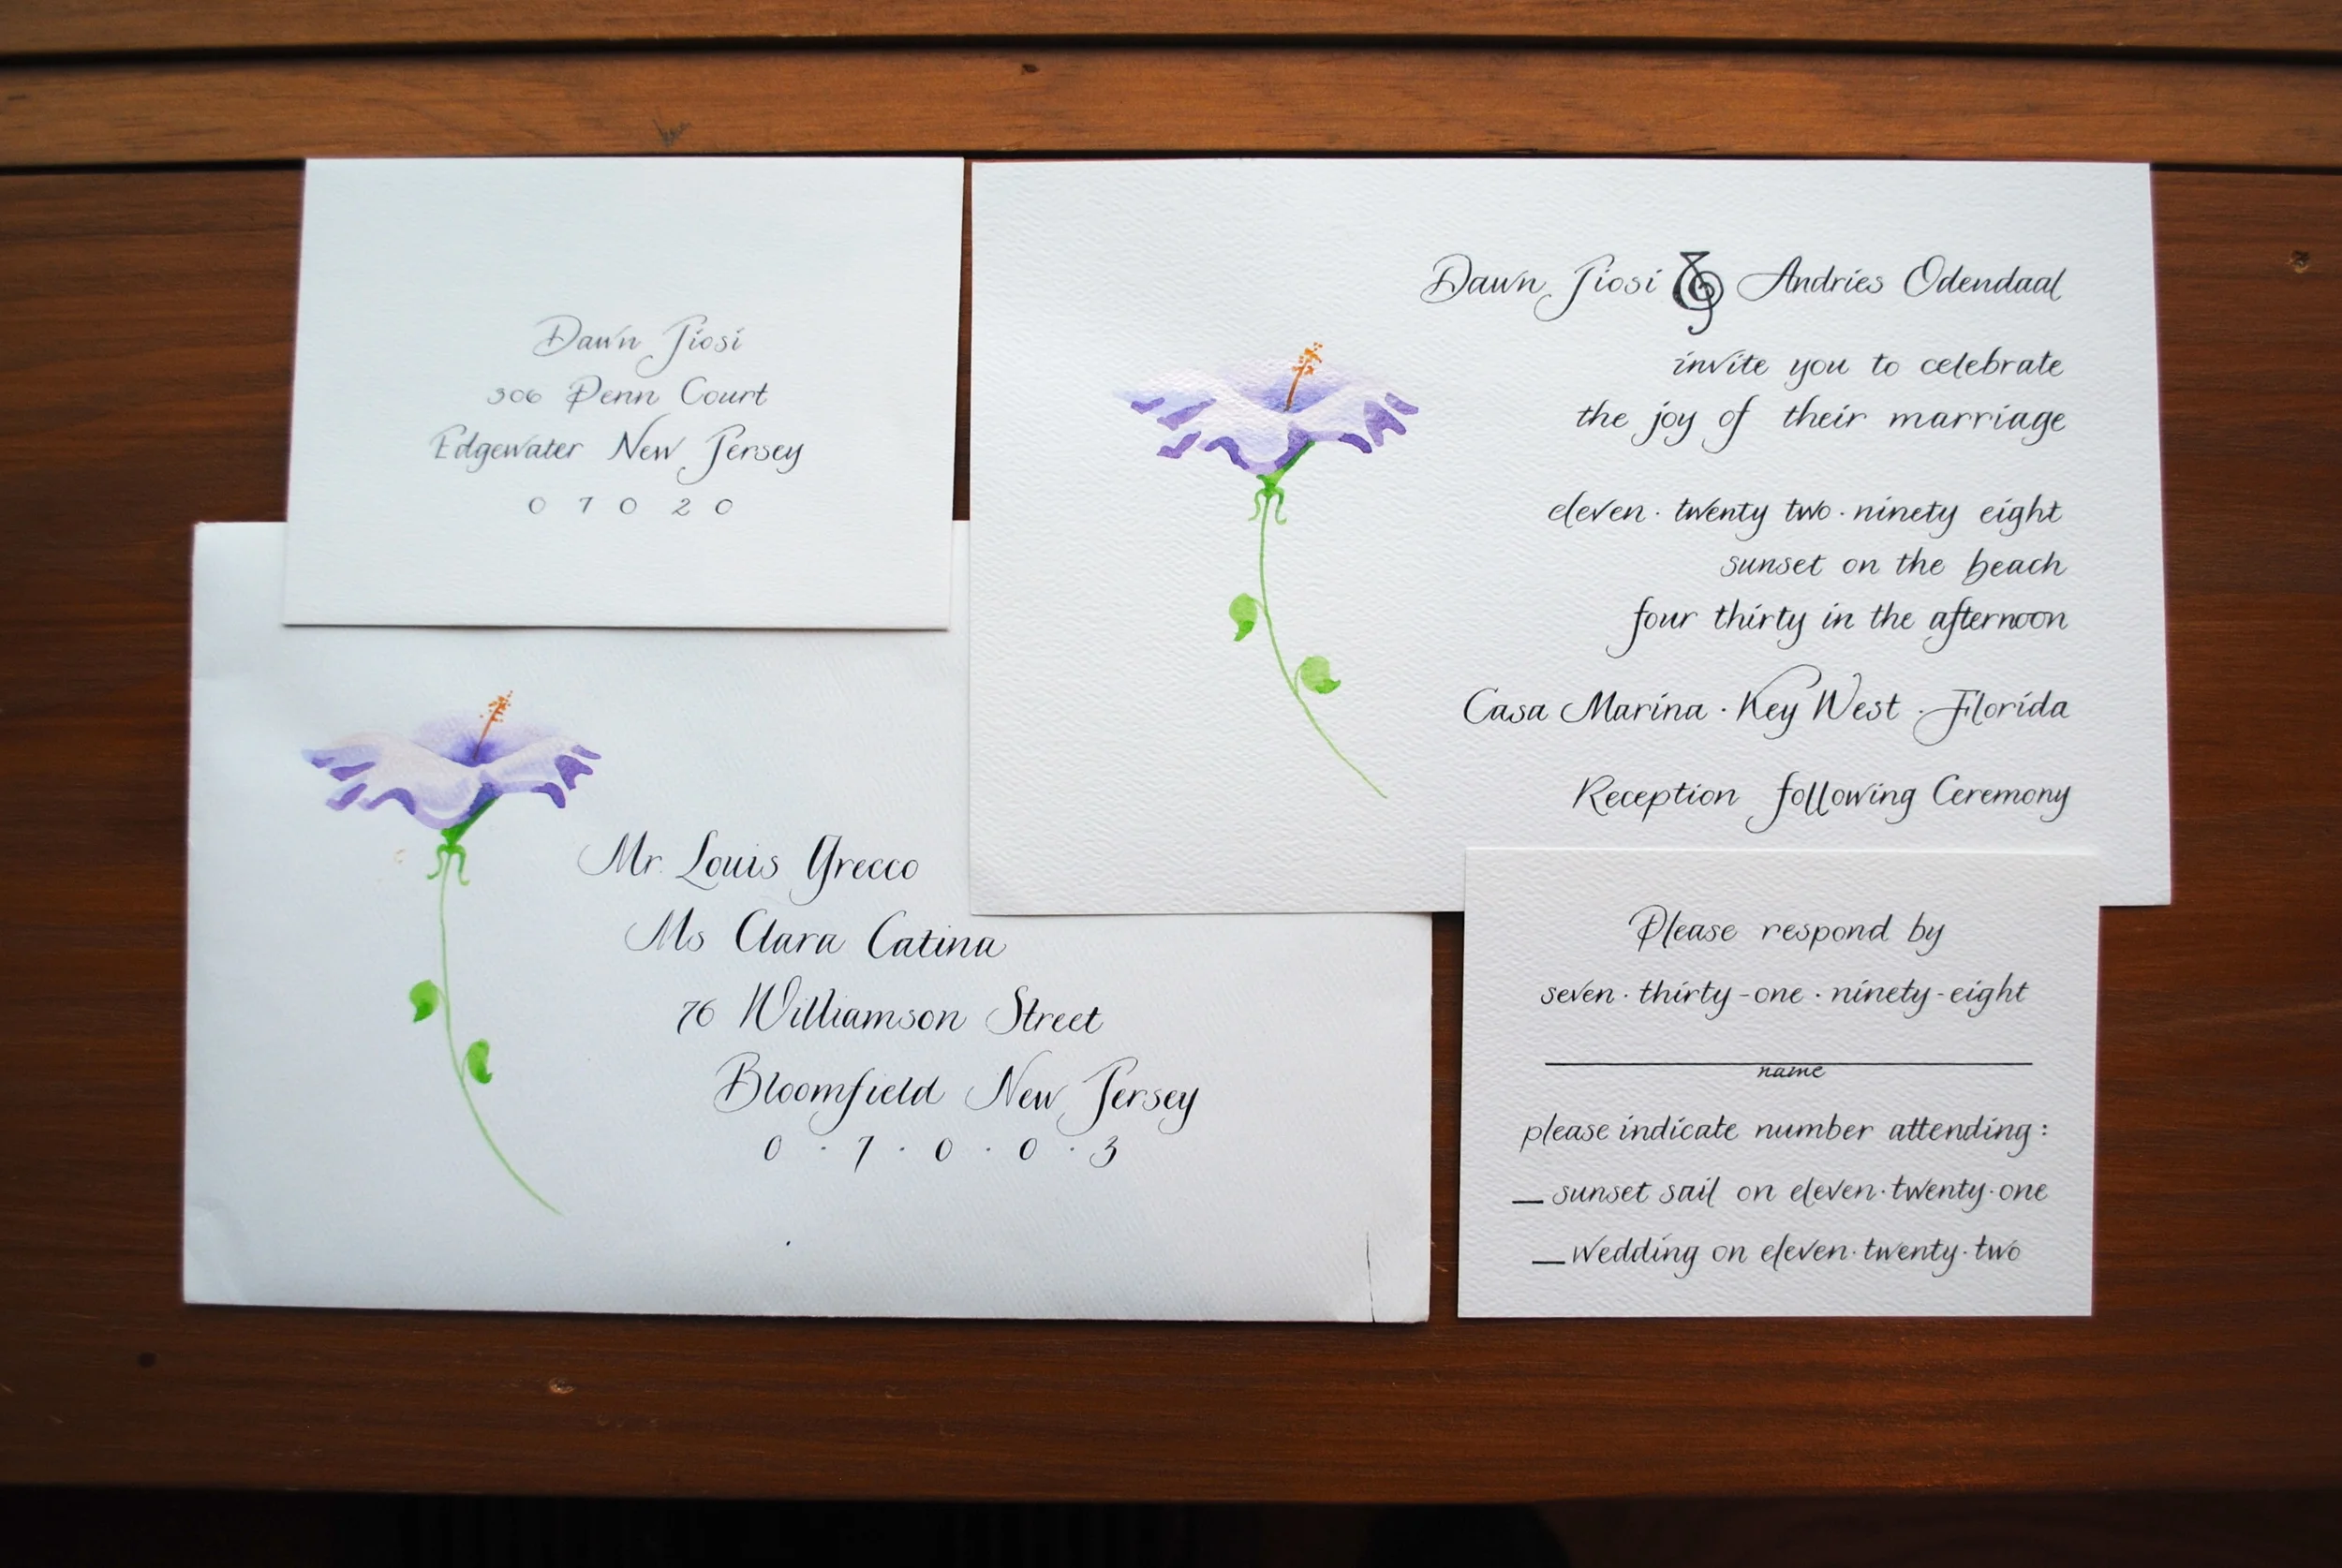 Dawn Tiosi
306 Penn Court
Edgewater New Jersey
0 7 0 2 0
Dawn Tiosi & Andries Odendaal
invite you to celebrate
the joy of their marriage
eleven · twenty two · ninety eight
sunset on the beach
four thirty in the afternoon
Casa Marina · Key West · Florida
Reception following Ceremony
Mr. Louis Grecco
Ms Clara Catina
76 Williamson Street
Bloomfield New Jersey
0 · 7 · 0 · 0 · 3
Please respond by
seven · thirty-one · ninety-eight
name
please indicate number attending:
__ sunset sail on eleven · twenty · one
__ wedding on eleven · twenty · two